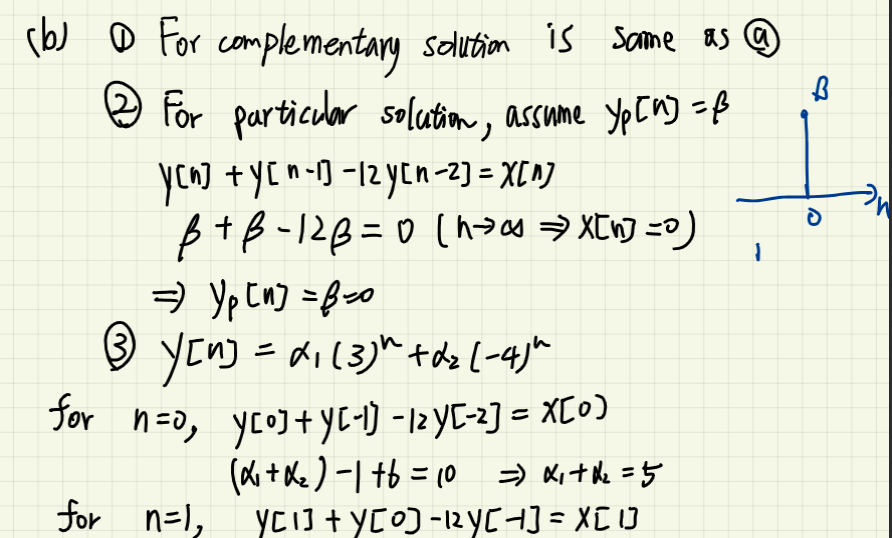 (b) ① For complementary solution is same as ⓐ
② For particular solution, assume yp[n] = β
y[n] + y[n-1] - 12y[n-2] = x[n]
β + β - 12β = 0 (n→∞ ⇒ x[n] = 0)
⇒ yp[n] = β = 0
③ y[n] = α₁(3)ⁿ + α₂(-4)ⁿ
for n=0, y[0] + y[-1] - 12y[-2] = x[0]
(α₁+α₂) - 1 + 6 = 10 ⇒ α₁+α₂ = 5
for n=1, y[1] + y[0] - 12y[-1] = x[1]
β
0
n
1